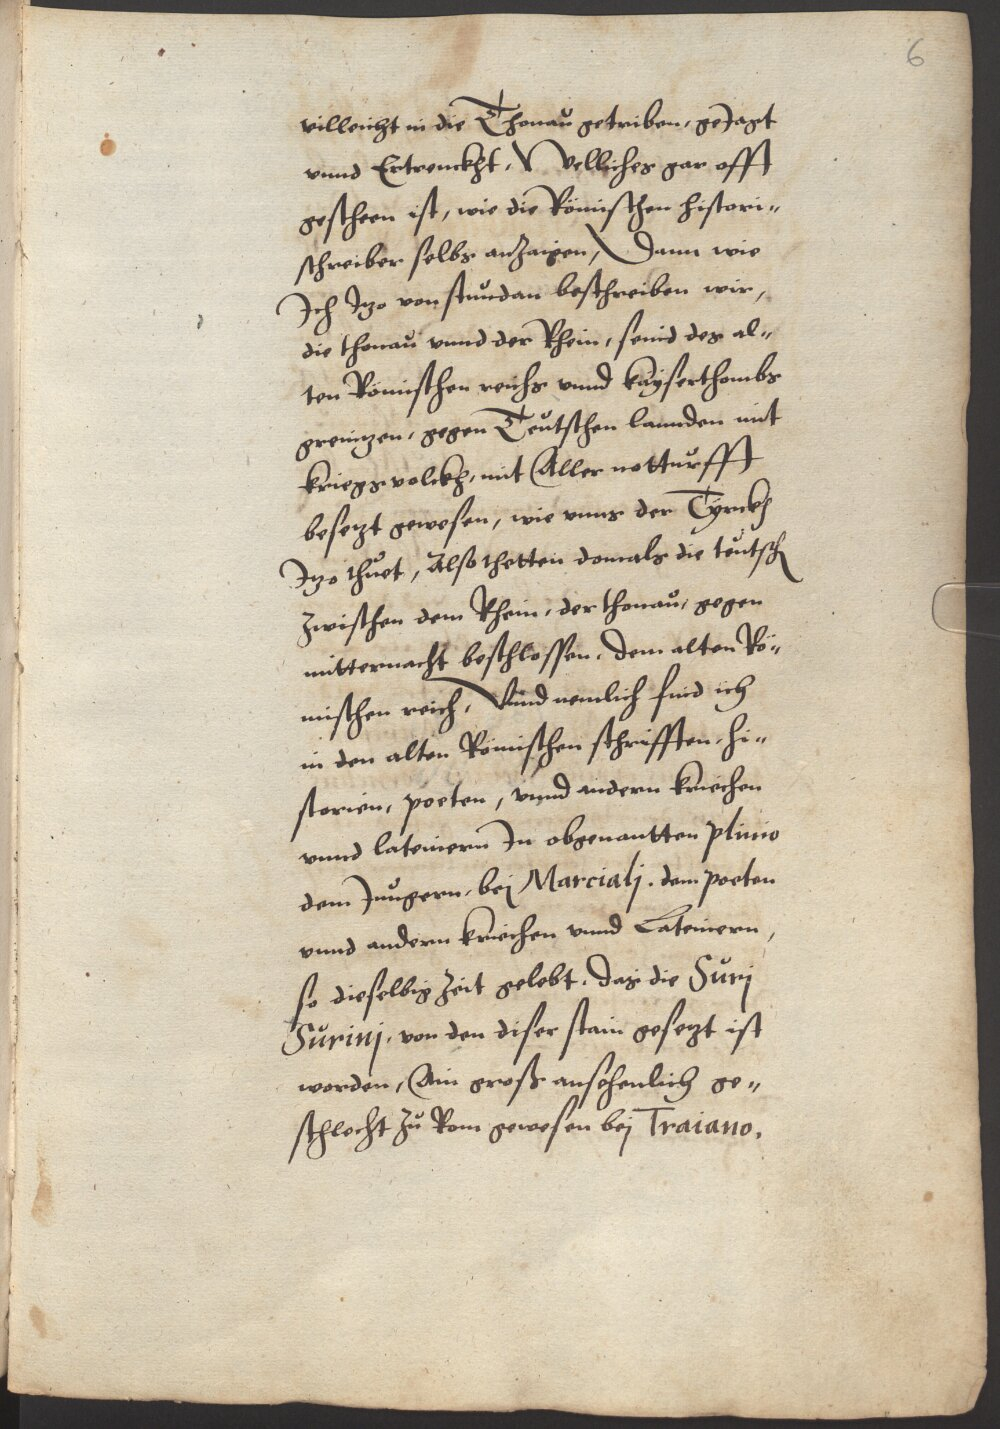 6
villeicht in die Thonaů getriben, geJagt
vnnd Ertrenckht, Welliches gar offt
gescheen ist, wie die Römischen histori„
schreiber selbs anZaigen, Dann wie
Ich Jzo von stůndan beschreiben wir,
die thonaů vnnd der Rhein, seind des al„
ten Römischen reichs vnnd kaÿserthombs
greinizen, gegen Teůtschen lannden mit
kriegsvolckh, mit Aller notturfft
besezt gewesen, wie vnns der Tÿrckh
Jzo thůet, Also thetten domals die teůtsch
Zwischen dem Rhein, der thonaů, gegen
mitternacht beschlossen, dem alten Rö„
mischen reich, Vnnd nemlich find ich
in den alten Römischen schrifften, hi„
storien, poeten, vnnd andern kriechen
vnnd lateinern Jn obgenantten plinio
dem Jungern, bej Marcialj. dem poeten
vnnd andern kriechen vnnd Lateinern,
so dieselbig Zeit gelebt. das die Sůrj
Sůrinj, von den diser stain gesezt ist
worden, Ain groß ansehenlich ge„
schlecht zů Rom gewesen bej Traiano.